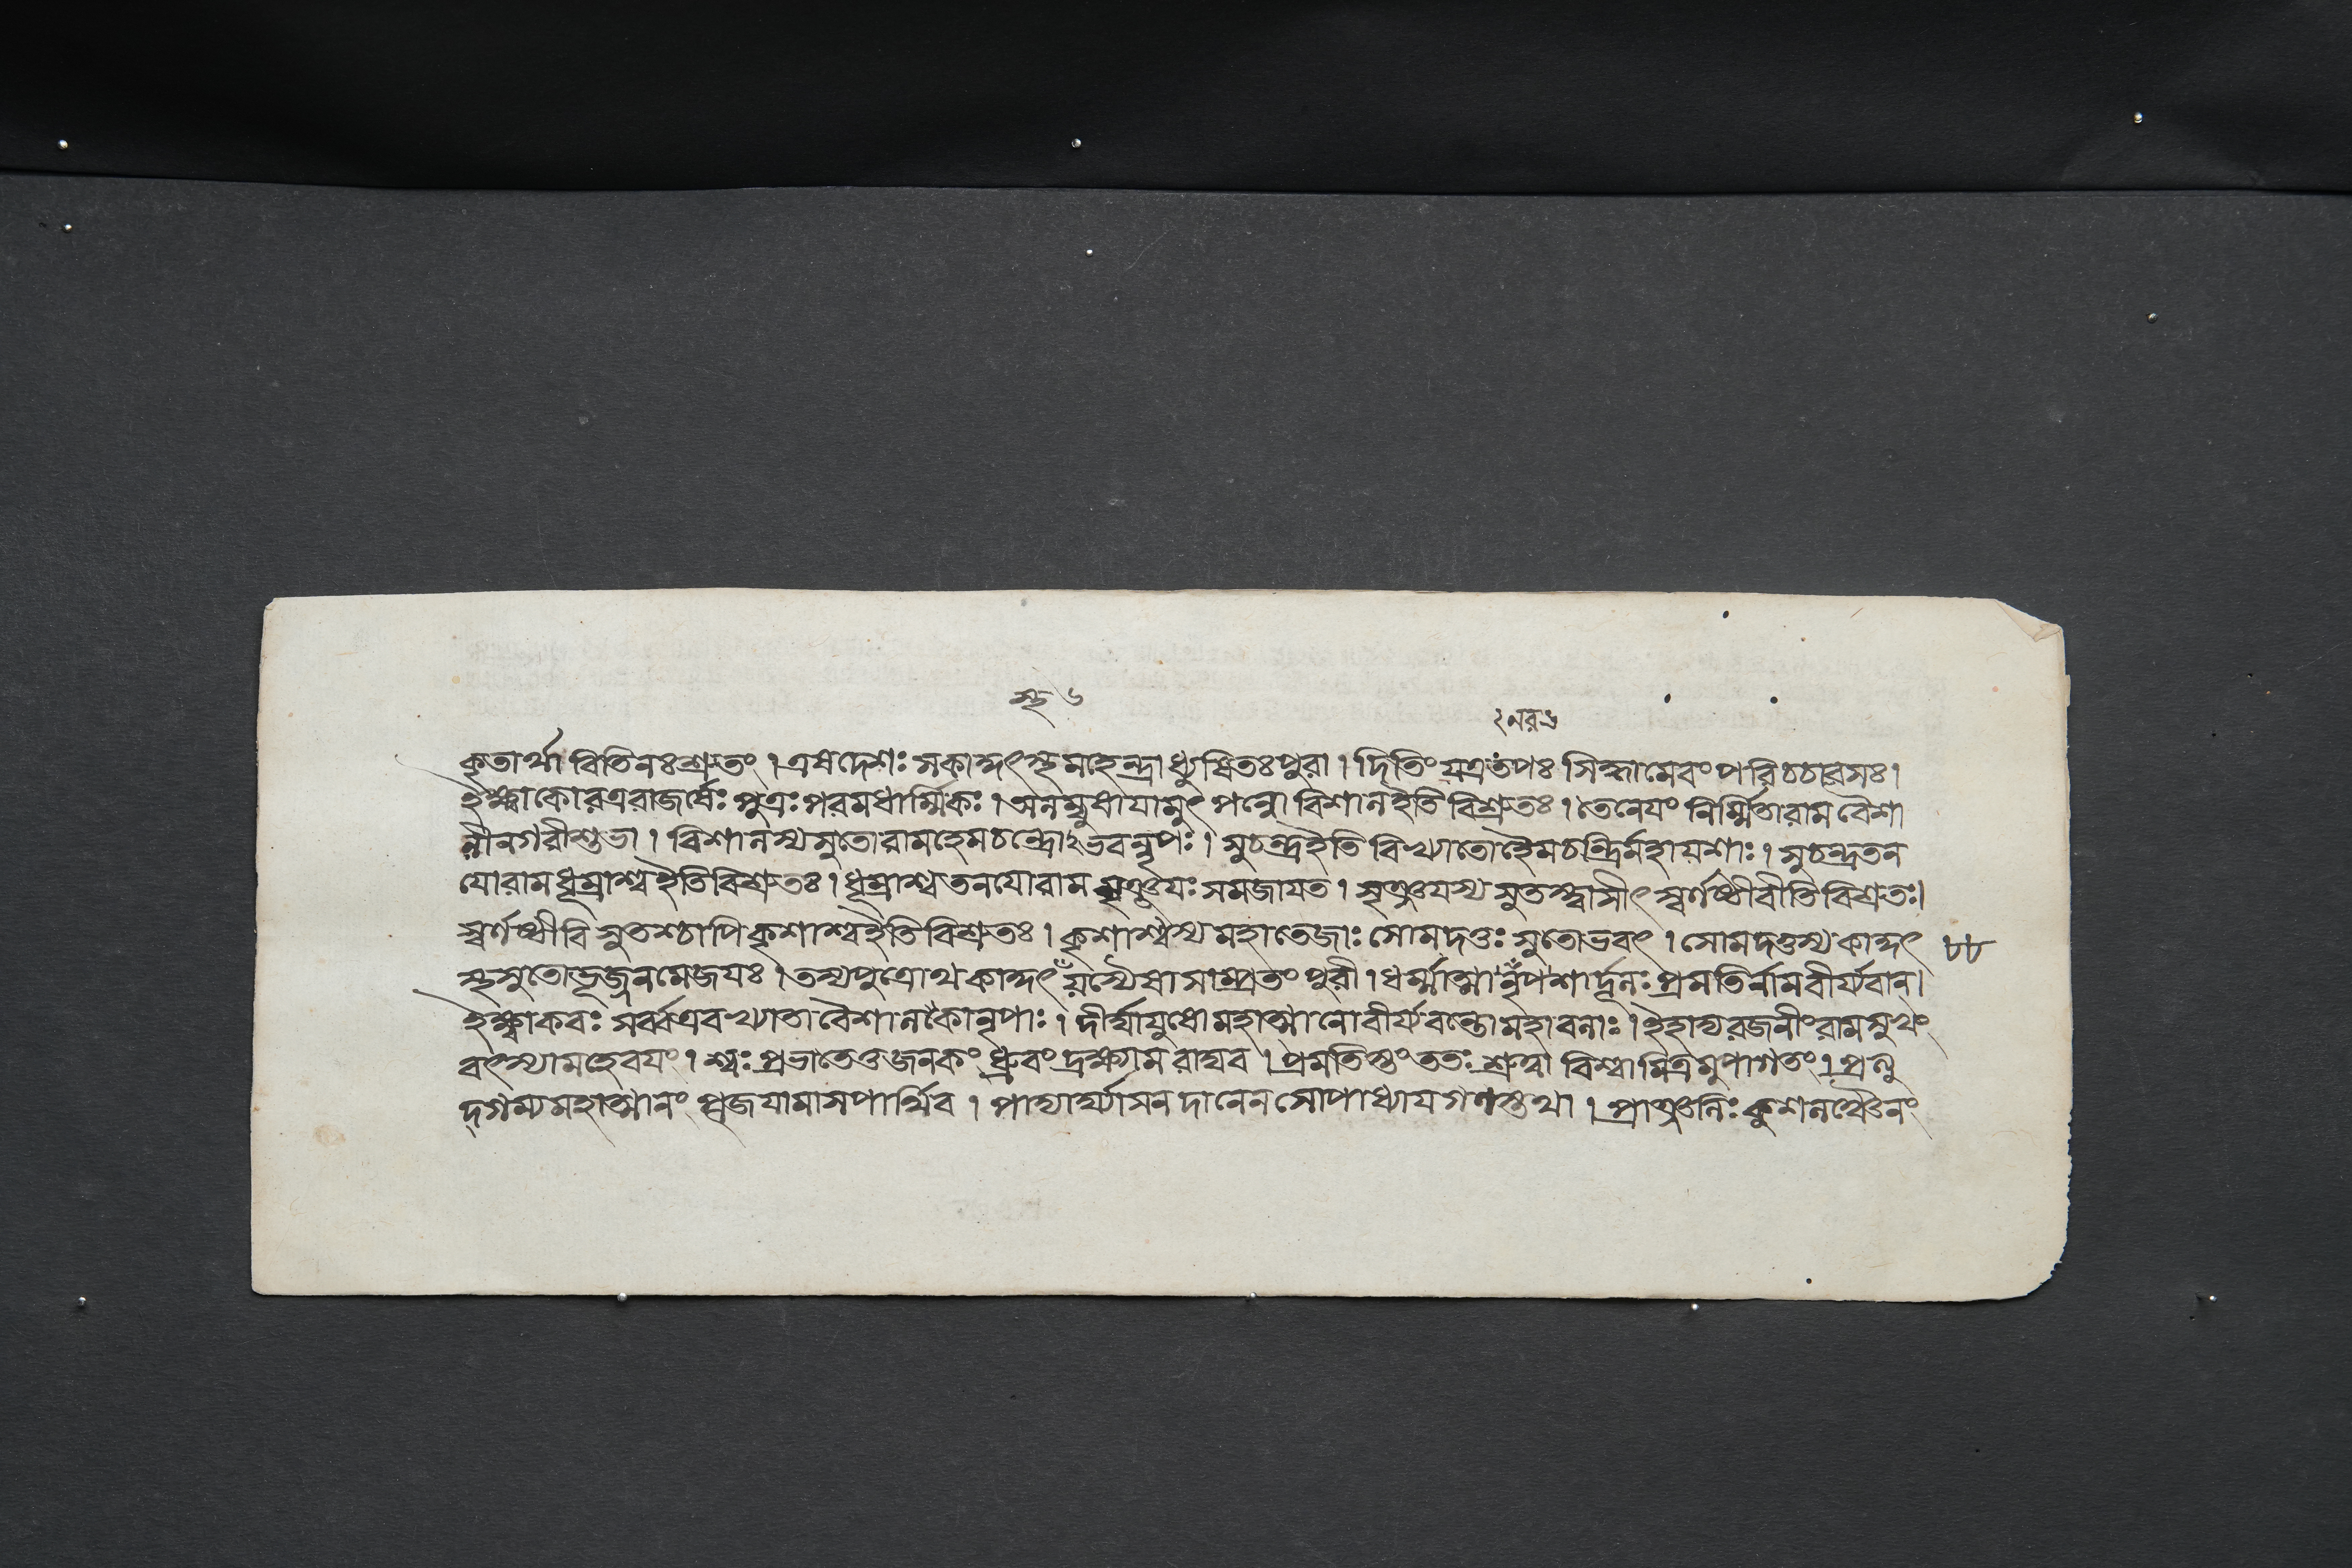 স্থ ৬
২নরভ্র
কৃতার্থা বিতিনঃশ্রুতং । এষদেশঃ সকাকুৎস্থমহেন্দ্রাধ্যুষিতঃপুরা । দিতিং যত্রতপঃ সিদ্ধামেবংপরিচচারসঃ ।
ইক্ষ্বাকোরত্ররাজর্ষেঃ পুত্রঃ পরমধার্ম্মিকঃ । অলম্বুষাযামুৎপন্নো বিশালইতিবিশ্রুতঃ । তেনেযং নির্ম্মিতারামবৈশা
লীনগরীশুভা । বিশালস্যসুতোরামহেমচন্দ্রোঽভবন্নৃপঃ । সুচন্দ্রইতি বিখ্যাতোহৈমচন্দ্রির্মহাযশাঃ । সুচন্দ্রতন
যোরামধূম্রাশ্বইতিবিশ্রুতঃ । ধূম্রাশ্বতনযোরাম সৃঞ্জযঃ সমজাযত । সৃঞ্জযস্য সুতস্ত্বাসীৎ স্বর্ণষ্ঠীবীতিবিশ্রুতঃ।
স্বর্ণষ্ঠীবি সুতশ্চাপিকৃশাশ্বইতিবিশ্রুতঃ । কৃশাশ্বস্য মহাতেজাঃ সোমদত্তঃ সুতোভবৎ । সোমদত্তস্য কাকুৎ ৮৮
স্থসুতোভূজ্জনমেজযঃ । তস্যপুত্রোথ কাকুৎ যস্যৈষাসাম্প্রতং পুরী । ধর্ম্মাত্মানৃপশার্দূলঃ প্রমতির্নামবীর্য্যবান্।
ইক্ষ্বাকবঃ সর্ব্বএবখ্যাতা বৈশালকোনৃপাঃ । দীর্ঘাযুষোমহাত্মানোবীর্য্যবন্তোমহাবলাঃ । ইহাদ্যরজনীংরামসুখং
বৎস্যামহেবযং । শ্বঃ প্রভাতেতুজনকং ধ্রুবং দ্রক্ষ্যাম রাঘব । প্রমতিস্তুং ততঃ শ্রুত্বা বিশ্বামিত্রমুপাগতং । প্রত্যু
দ্গম্যমহাত্মানং পূজযামাসপার্থিব । পাদ্যার্ঘ্যাসনদানেনসোপাধ্যাযগণস্তথা । প্রাঞ্জলিঃ কুশলঞ্চৈনং